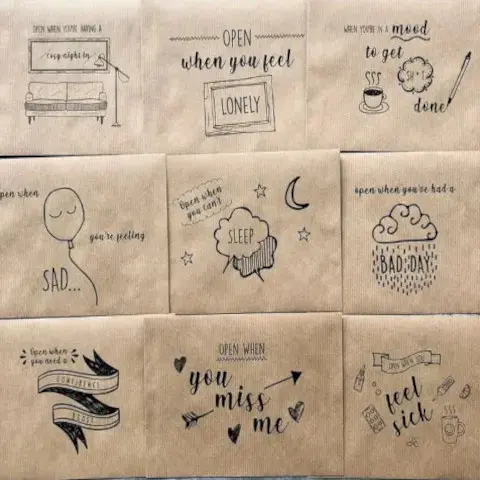 OPEN WHEN YOU'RE HAVING A
cosy night in
OPEN
when you feel
LONELY
WHEN YOU'RE IN A mood
to get
SH*T
done
open when
you're feeling
SAD...
Open when
you can't
SLEEP
open when you've had a
BAD DAY
Open when
you need a
CONFIDENCE
BOOST
OPEN WHEN
you
miss
me
OPEN WHEN YOU
feel
sick